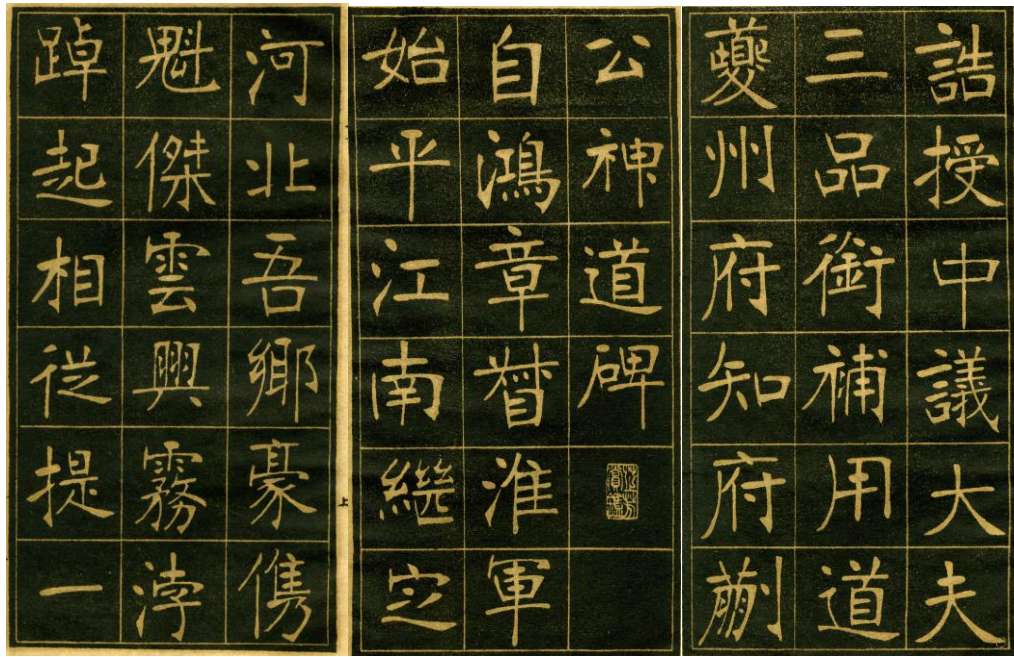 誥授中議大夫
三品銜補用道
夔州府知府蒯
公神道碑
自鴻章督淮軍
始平江南繼定
上
河北吾鄉豪儁
魁傑雲興霧浡
踔起相從提一